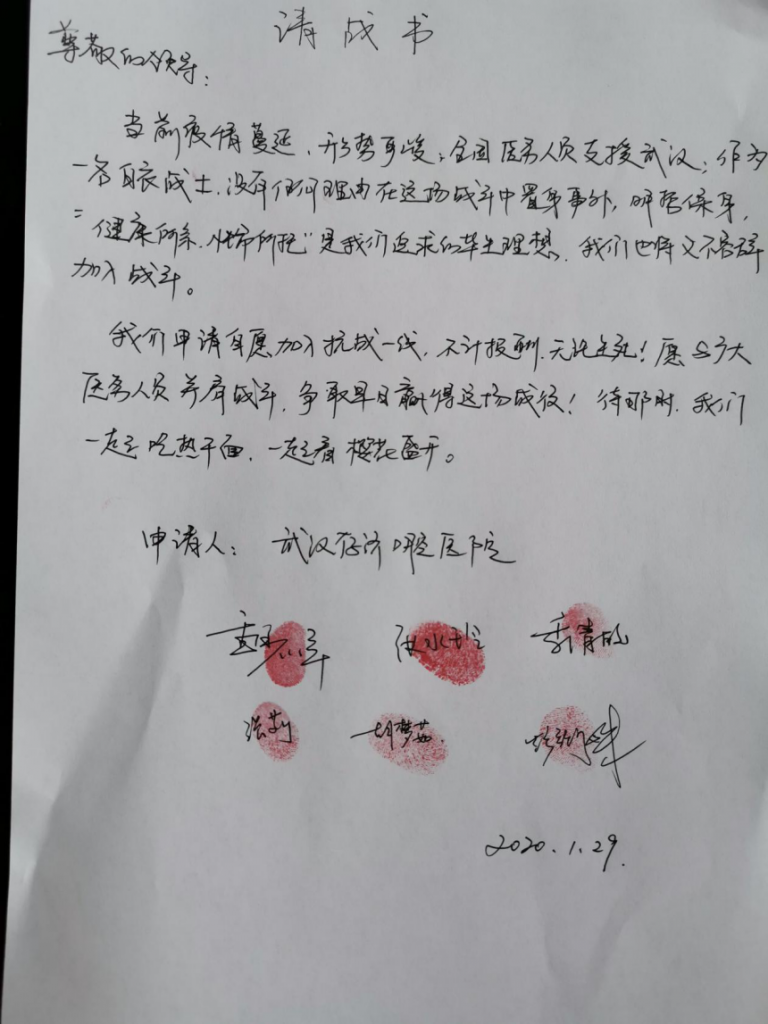 请战书
尊敬的领导:
当前疫情蔓延、形势严峻,全国医务人员支援武汉;作为
一名白衣战士,没有任何理由在这场战斗中置身事外,明哲保身,
"健康所系、性命所托"是我们追求的毕生理想、我们也将义不容辞
加入战斗。
我们申请自愿加入抗战一线,不计报酬、无论生死!愿与广大
医务人员并肩战斗,争取早日赢得这场战役!待那时,我们
一起吃热干面、一起看樱花盛开。
申请人: 武汉存济口腔医院
张莉 胡梦茹
2020.1.29.